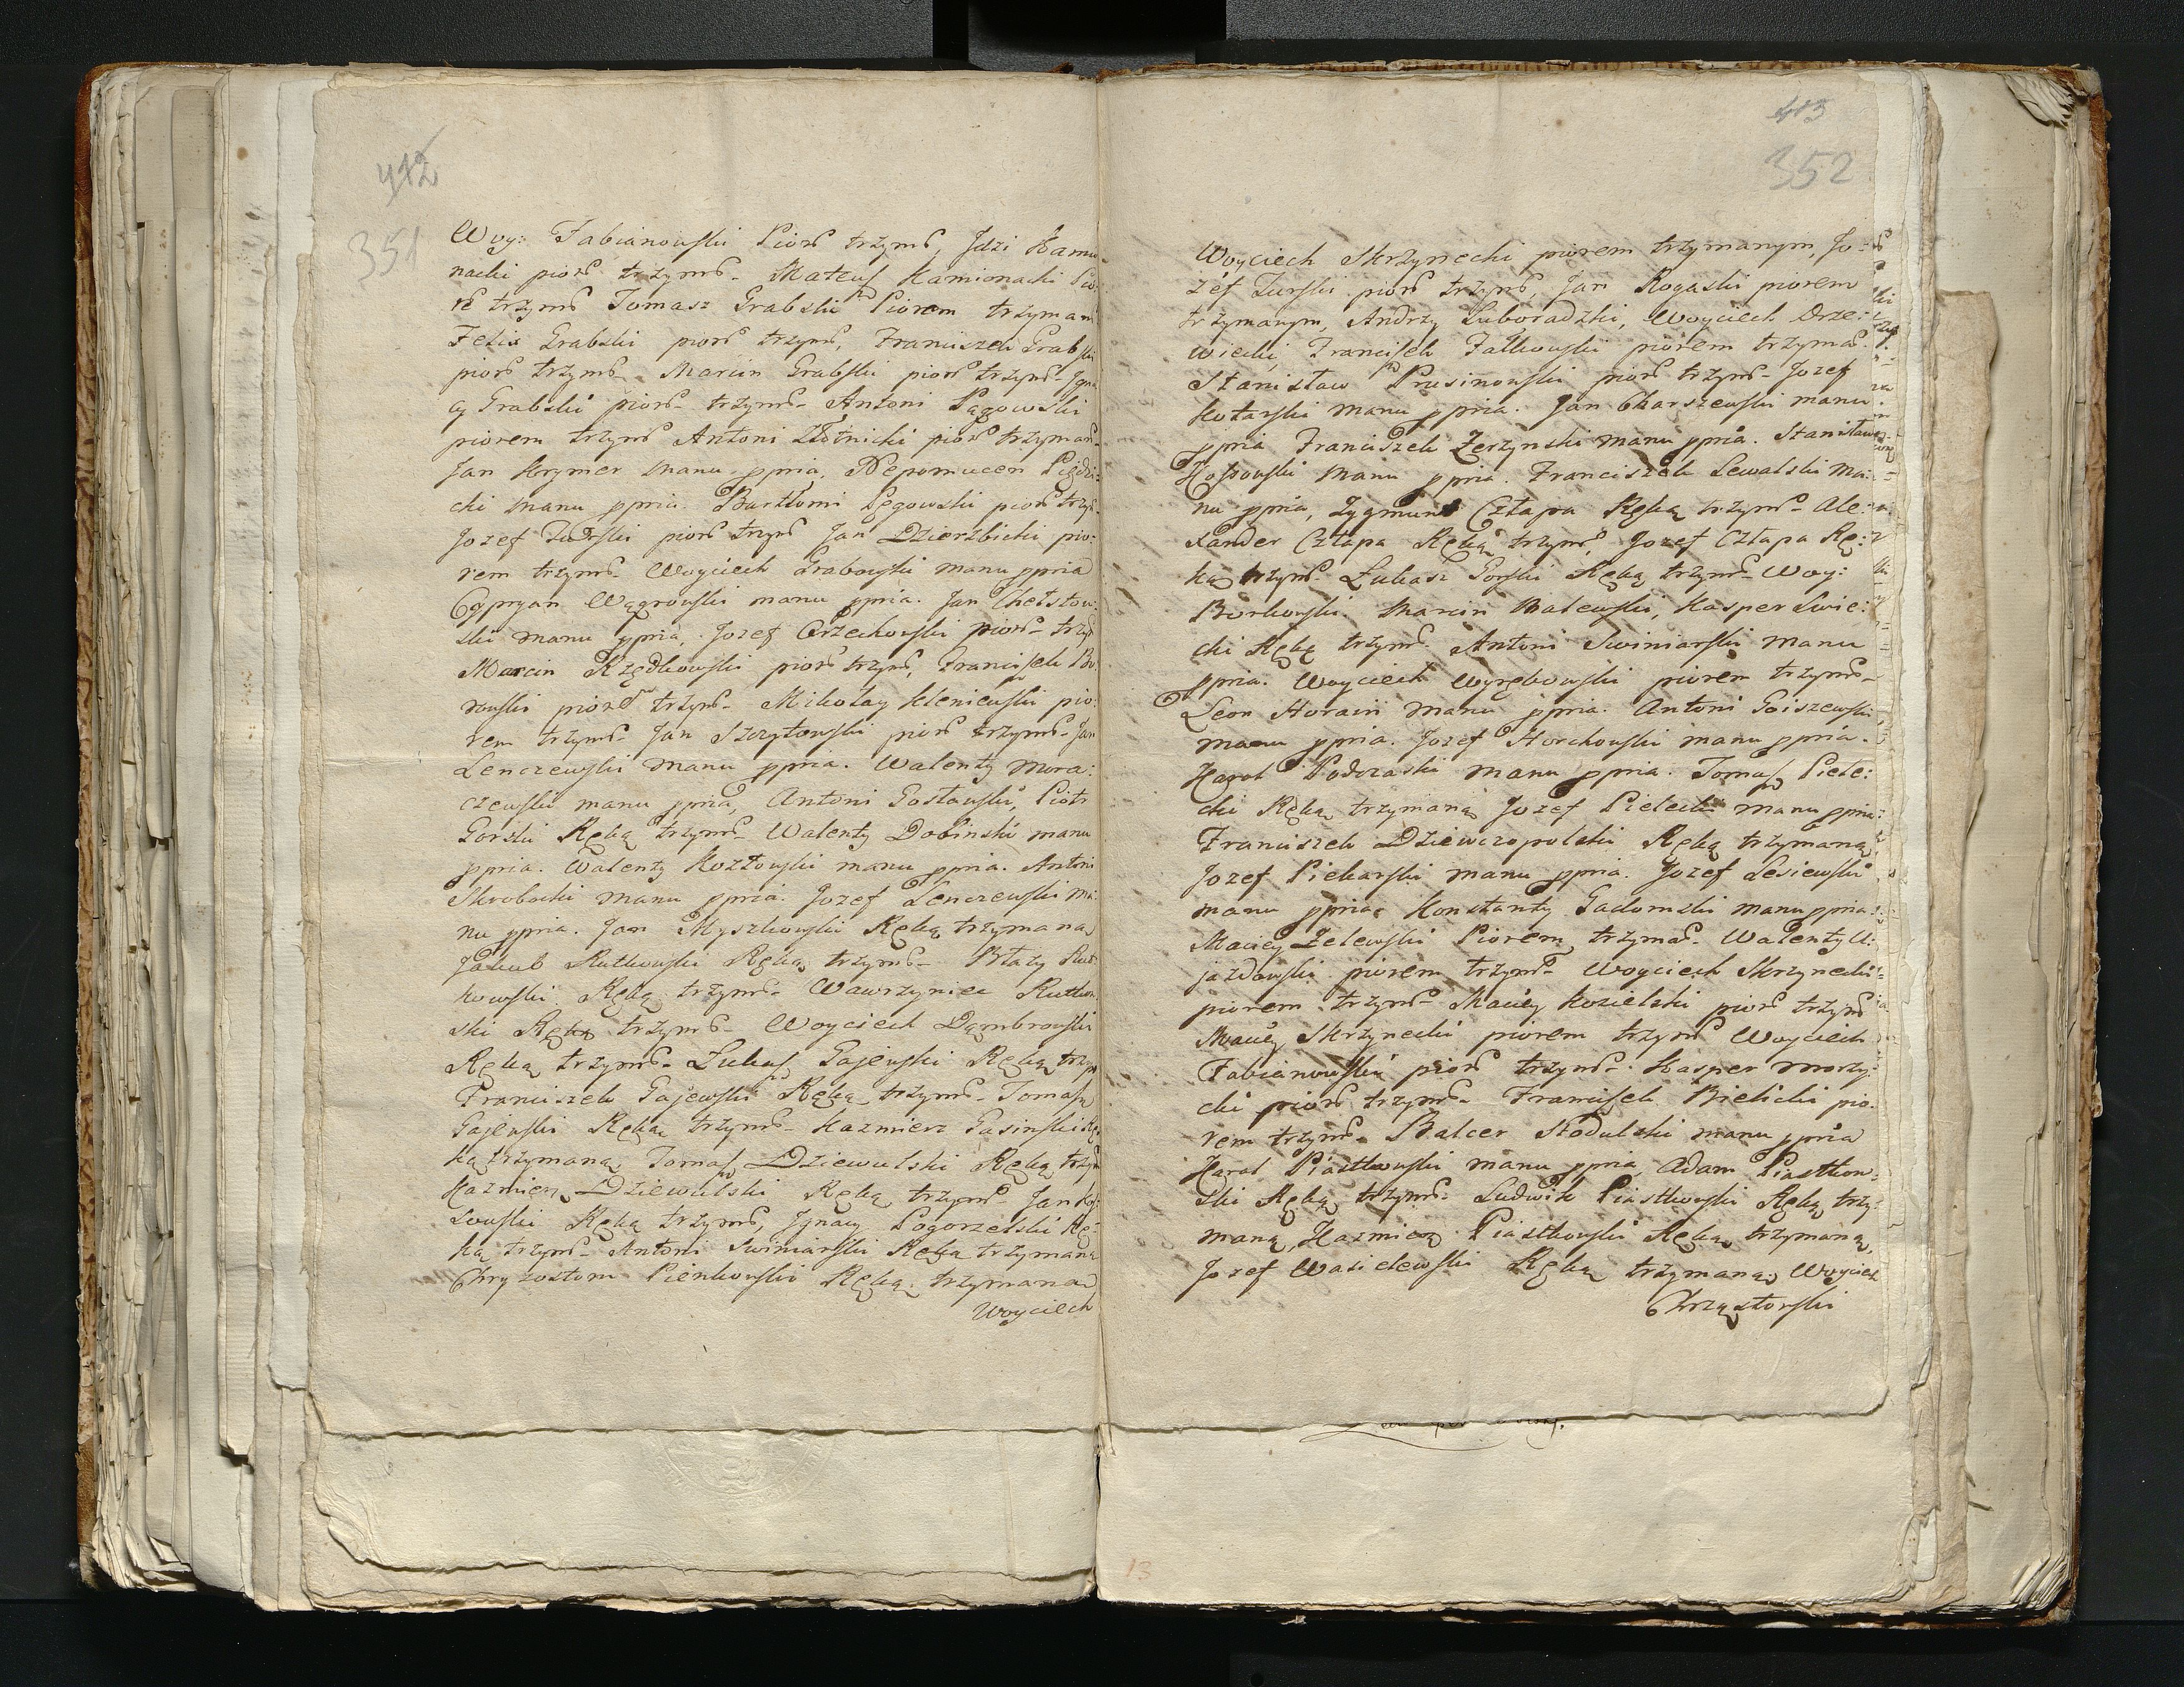 412
351
Woy: Fabianowski Piorē trzymē, Jdzi Kamio
nacki piorē trzymē - Mateusz Kamionacki Pio
rē trzymē Tomasz Grabski Piorem trzymanē
Felix Grabski piorē trzymē, Franciszek Grabski
piorē trzymē - Marcin Grabski piorē trzymē - Jgna
cy Grabski piorē - trzymē - Antoni Pągowski
piorem trzymē Antoni Złotnicki piorē trzymanē
Jan Krymer manu ppria, Nepomucen
cki manu ppria. Bartłomi Pęgowski piorē trzyē
Jozef piorē trzyē Jan Dzierzbicki pio:
rem trzymē - Woyciech Grabowski manu ppria
Cypryan Wągrowski manu ppria. Jan Chełstow:
ski manu ppria, Jozef Orzechowski piorē - trzyē
Marcin Rządkowski piorē trzymē, Franciszek Bo
rowski piorē trzymē - Mikołay Kleniewski pio:
rem trzymē - Jan Szczytowski piorē trzymē - Jan
Lenczewski manu ppria. Walenty Mora:
czewski manu ppria, Antoni Gostawski, Piotr
Gorski Ręką trzymē - Walenty Dobinski manu
ppria. Walenty Kozłowski manu ppria. Antoni
Skrobocki manu ppria. Jozef Lenczewski ma:
nu ppria. Jan Myszkowski Ręką trzymaną
Jakub Rutkowski Ręką trzymē - Błaży Rut
kowski Ręką trzymē - Wawrzyniec Rutkow
ski Ręką trzymē - Woyciech Dąmbrowski
Ręką trzymē - Łukasz Gajewski Ręką trzy
Franciszek Gajewski Ręką trzymē - Tomasz
Gajewski Ręką trzymē - Kazmierz Gasinski Rę
ką trzymaną, Tomasz Dziewulski Ręką trzym
Kazmierz Dziewulski Ręką trzymē Jan
Ręką trzymē, Jgnacy Pogorzelski Rę-
ką trzymē - Antoni Swiniarski Ręką trzymaną
Chryzostom Pienkowski Ręką trzymaną
Woyciech
413
352
Woyciech Skrzynecki piorem trzymanym, Jo-
zéf Turski piorē trzymē, Jan Rogaski piorem
trzymanym, Andrzy Luboradzki, Woyciech Drze:
wiecki, Franciszek Fałkowski piorem trzymaē
Stanisław Prusinowski piorē trzymē - Jozef
Kotarski manu ppria. Jan Charszewski manu
ppria Franciszek Zerzynski manu ppria. Stanisław
manu ppria. Franciszek Lewalski ma:
nu ppria, Zygmunt Człapa Ręką trzymē - Ale:
xander Człapa Ręką trzymē, Jozef Człapa Rę:
ką trzymē - Łukasz Gorski Ręką trzymē - Woy:
Borkowski. Marcin Malewski, Kasper Swie:
cki Ręką trzymē Antoni Swiniarski manu
ppria. Woyciech Wyrębowski piorem trzymē -
Leon Horain manu ppria. Antoni Goiszewski
manu ppria. Jozef Horchowski manu ppria.
Karol Podczaski manu ppria. Tomasz Piele:
cki Ręką trzymaną Jozef Pielecki manu ppria
Franciszek Dziewczopolski Ręką trzymaną
Jozef Piekarski manu ppria. Jozef Lesiewski
manu ppria, Konstanty Gadomski manu ppria
Maciey Zelewski Piorem trzymaē - Walenty U:
jazdowski piorem trzymē - Woyciech Skrzynecki
piorem trzymē - Maciey Kozielski piorē trzymē
Maciey Skrzynecki piorem trzymē Woyciech
Fabianowski piorē trzymē - Kasper Morzy:
cki piorē trzymē - Franciszek Bielicki pio-
rem trzymē - Balcer Kodulski manu ppria
Karol Piastkowski manu ppria, Adam Piastkow
ski Ręką trzymē - Ludwik Piastkowski Ręką trzy
maną, Kazmierz Piastkowski Ręką trzymaną,
Jozef Wasilewski Ręką trzymaną, Woyciech
Chrząstowski
13